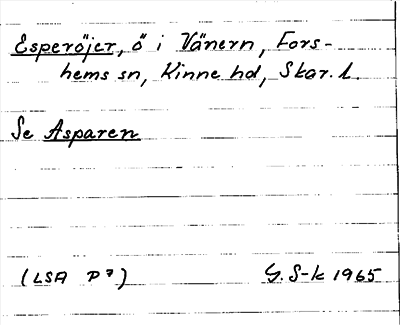 Esperöjer, ö i Vänern, Fors-
hems sn, Kinne hd, Skar. l.
Se Asparen
(LSA P 7) G. S-k 1965